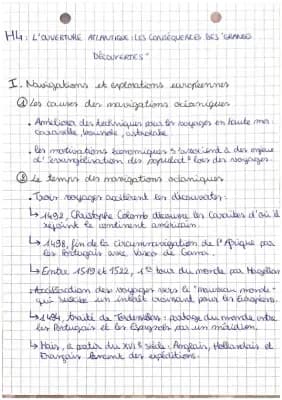 H4 : L'OUVERTURE ATLANTIQUE : LES CONSÉQUENCES DES "GRANDES
DÉCOUVERTES"
I. Navigations et explorations européennes
① Les causes des navigations océaniques
• Améliorer des techniques pour les voyages en haute mer :
caravelle, boussole, astrolabe.
• Les motivations économiques s'associent à des enjeux
d'évangélisation des populat° lors des voyages.
② Le temps des navigations océaniques
• Trois voyages accélèrent les découvertes :
↳ 1492, Christophe Colomb découvre les Caraïbes d'où il
rejoint le continent américain.
↳ 1498, fin de la circumnavigation de l'Afrique par
les Portugais avec Vasco de Gama.
↳ Entre 1519 et 1522, 1er tour du monde par Magellan
• Accélération des voyages vers le "nouveau monde"
qui suscite un intérêt croissant pour les Européens.
↳ 1494, traité de Tordesillas : partage du monde entre
les Portugais et les Espagnols par un méridien.
↳ Mais, à partir du XVIe siècle : Anglais, Hollandais et
Français lancent des expéditions.